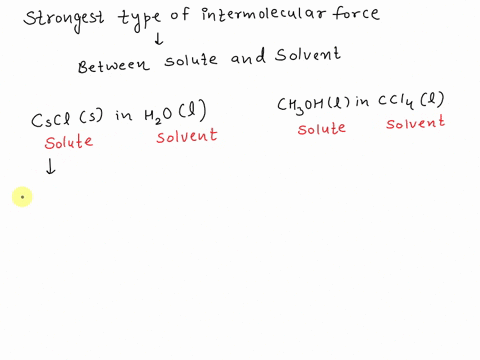 Strongest type of intermolecular force
↓
Between solute and Solvent
CsCl (s) in H₂O (l)
Solute Solvent
↓
CH₃OH (l) in CCl₄ (l)
Solute Solvent